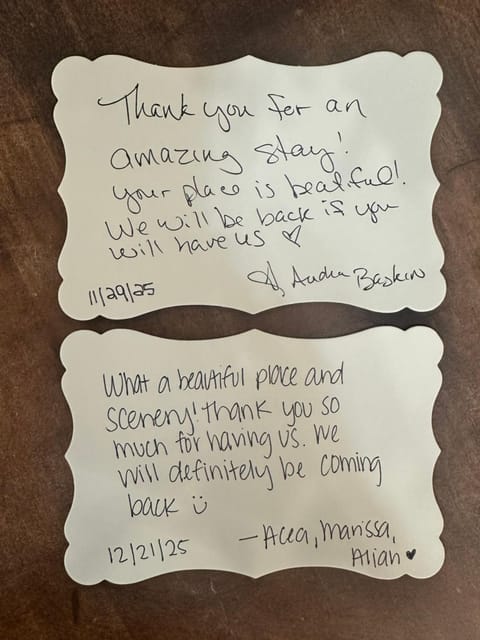 Thank you for an
amazing stay!
your place is beatiful!
We will be back if you
will have us ♡
Baskin
11/29/25
What a beautiful place and
scenery! thank you so
much for having us. We
will definitely be coming
back ü
12/21/25
—Acea, Marissa,
Aliah ♥